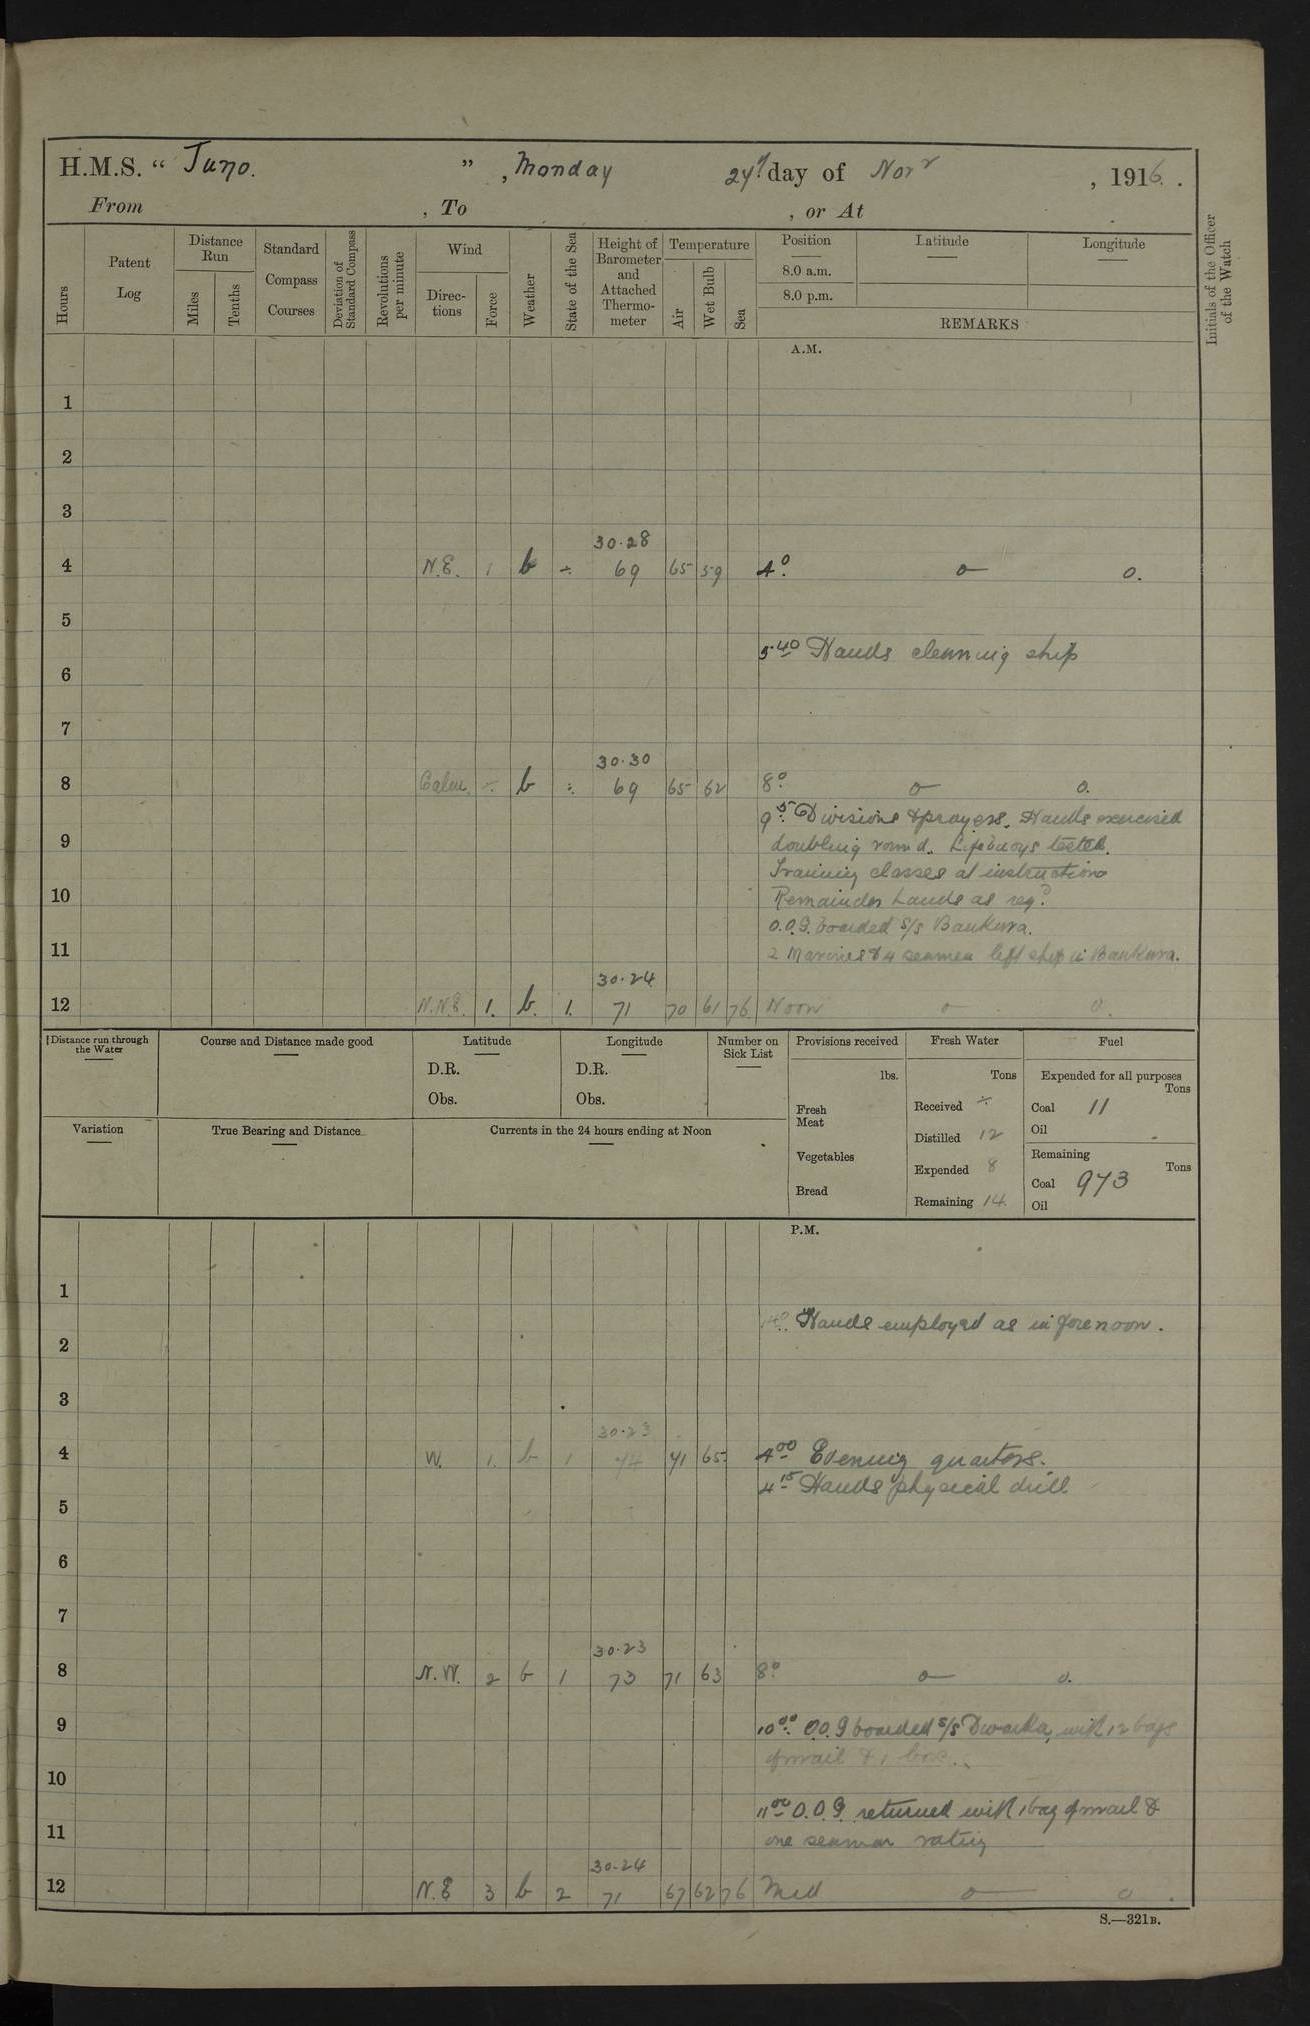 H.M.S. “ Juno. ” , Monday 27th day of Novr , 1916 .
From , To , or At
Hours
Patent Log
Distance Run
Miles
Tenths
Standard Compass Courses
Deviation of Standard Compass
Revolutions per minute
Wind
Direc- tions
Force
Weather
State of the Sea
Height of Barometer and Attached Thermo- meter
Temperature
Air
Wet Bulb
Sea
Position
8.0 a.m.
8.0 p.m.
Latitude
Longitude
REMARKS
Initials of the Officer of the Watch
A.M.
1
2
3
30.28
4 N.E. 1 b ÷ 69 65 59 4.0 o o.
5
5.40 Hands cleaning ship
6
7
30.30
8 Calm. ÷ b ÷ 69 65 62 8.0 o o.
9.5 Divisions & prayers. Hands exercised
9 doubling round. Lifebuoys tested.
Training classes at instruction
10 Remainder hands as reqd.
O.O.G. boarded S/S Bankura.
11 2 Marines & 4 seamen left ship in Bankura.
30.24
12 N.N.E. 1. b. 1. 71 70 61 76 Noon o o.
Distance run through the Water
Course and Distance made good
Latitude
D.R.
Obs.
Longitude
D.R.
Obs.
Number on Sick List
Provisions received
lbs.
Fresh Meat
Vegetables
Bread
Fresh Water
Tons
Received ÷
Distilled 12
Expended 8
Remaining 14
Fuel
Expended for all purposes
Tons
Coal 11
Oil
Remaining
Tons
Coal 973
Oil
Variation
True Bearing and Distance
Currents in the 24 hours ending at Noon
P.M.
1
Hands employed as in forenoon.
2
3
30.23
4 W. 1. b 1 74 71 65 4.00 Evening quarters.
4.15 Hands physical drill
5
6
7
30.23
8 N.W. 2 b 1 73 71 63 8.0 o o.
9 10.00 O.O.G boarded S/S Dwarka, with 12 bags
of mail & 1 box.
10
11.00 O.O.G. returned with 1 bag of mail &
11 one seaman rating
30.24
12 N.E 3 b 2 71 67 62 76 Mid o o
S.—321B.